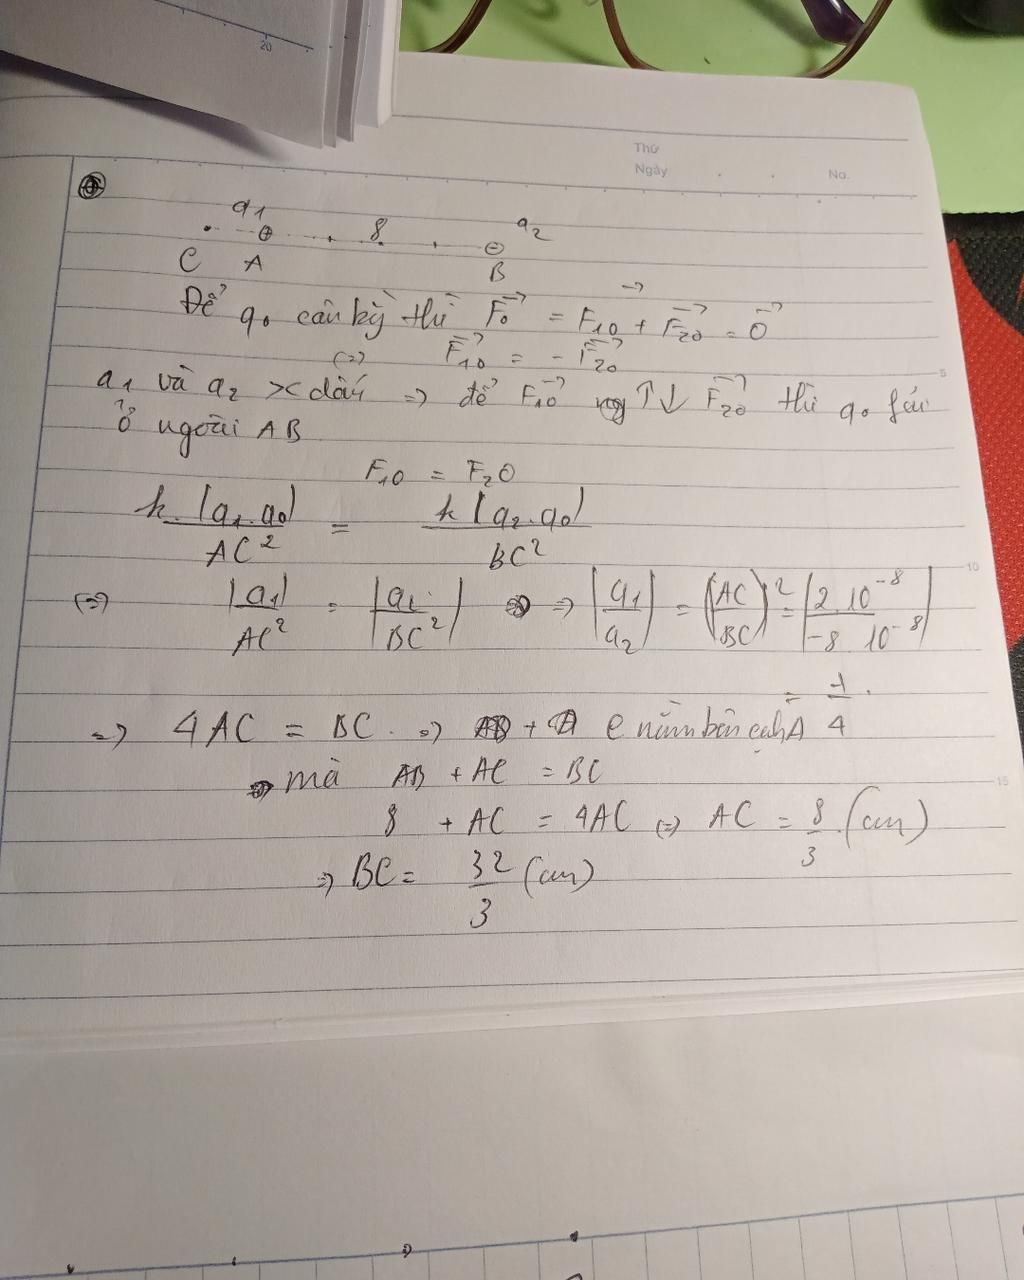 20
Thứ
Ngày
No.
q1 8 q2
C A B
Để q0 cân bằng thì F0→ = F10→ + F20→ = 0→
(=) F10→ = - F20→
5
q1 và q2 >< dấu => để F10→ ↑↓ F20→ thì q0 phải
ở ngoài AB
F10 = F20
k.|q1.q0|/AC² = k|q2.q0|/BC²
10
(=) |q1|/AC² = |q2/BC²| => |q1/q2| = (AC/BC)² = |2.10⁻⁸/-8.10⁻⁸|
= 1/4
=> 4AC = BC. => C nằm bên cạnh A
mà AB + AC = BC
15
8 + AC = 4AC (=) AC = 8/3 (cm)
=> BC = 32/3 (cm)